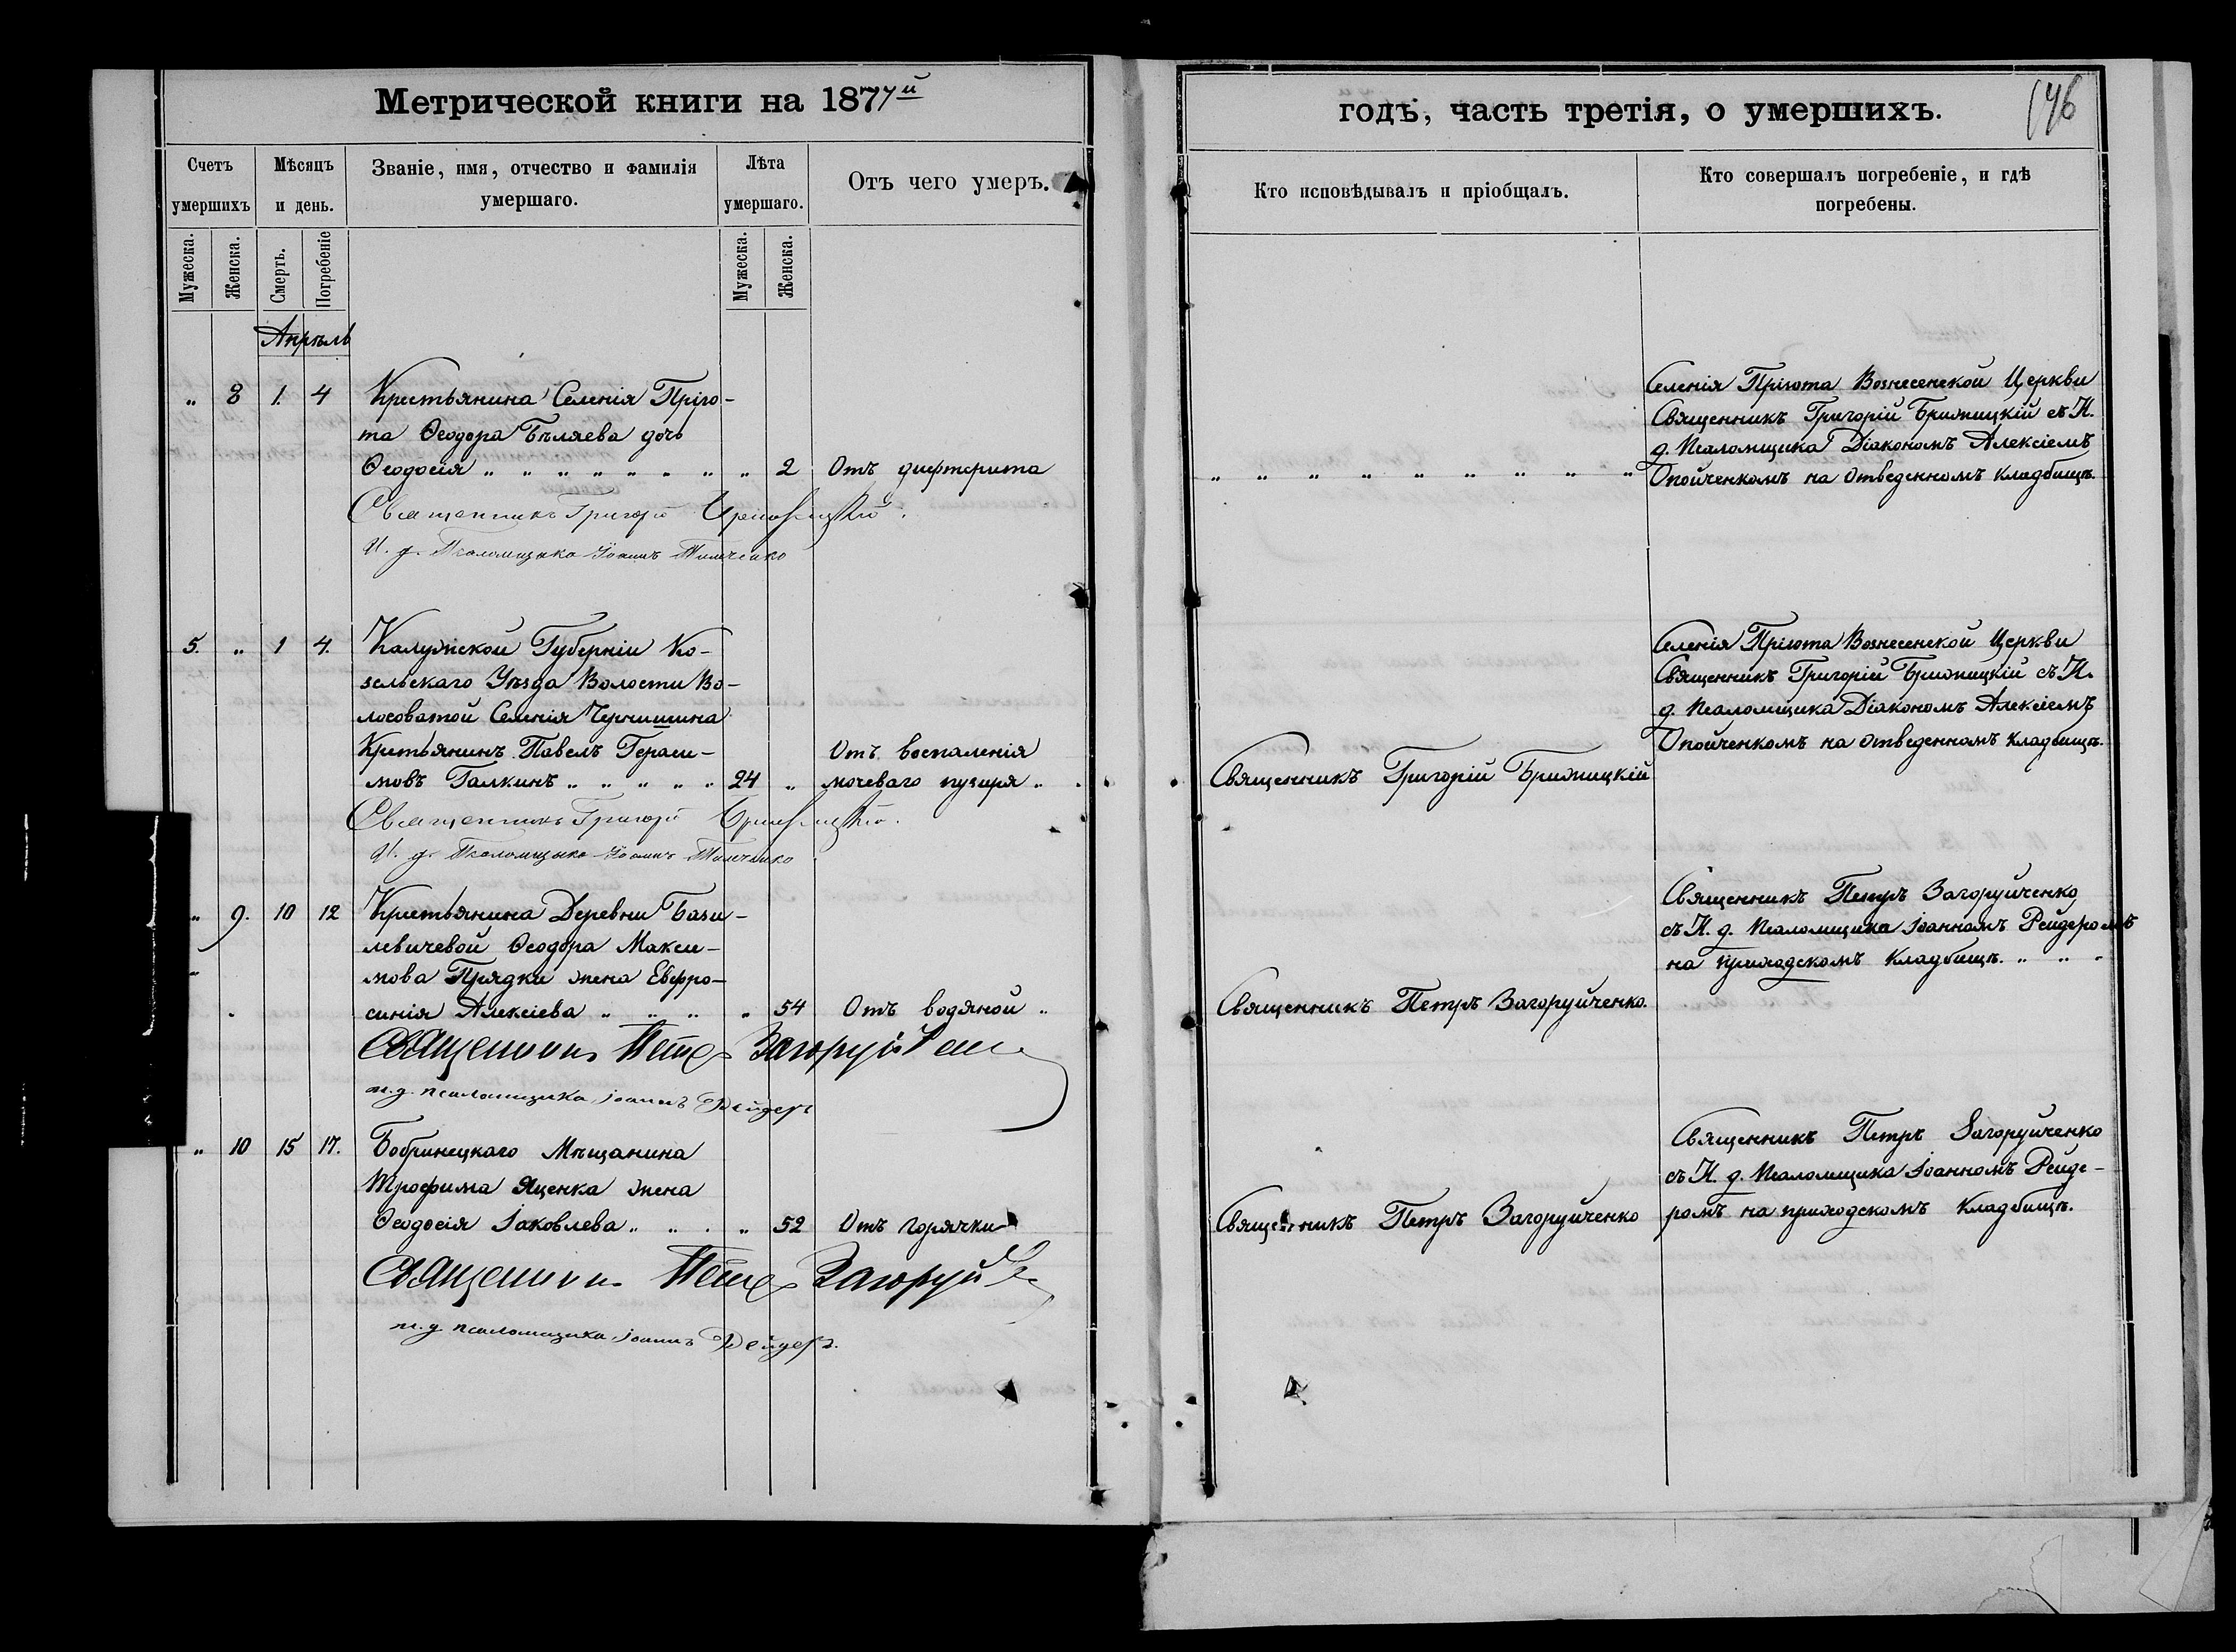 Метрической книги на 1877й
Счетъ умершихъ
Мѣсяцъ и день.
Званіе, имя, отчество и фамилія умершаго.
Лѣта умершаго.
Отъ чего умеръ.
Мужеска.
Женска.
Смерть.
Погребеніе
Мужеска.
Женска.
Апрѣль
„ 8 1. 4 Крестьянина Селенія Пріго-
та Ѳеодора Бѣляева дочь
Ѳеодосія „ „ „ „ „ „ „ „ 2 Отъ дифтерита
Священникъ Григорій
И. д. Псаломщика Іоаннъ Тимченко
5. „ 1 4. Калужской Губерніи Ко-
зельскаго Уѣзда Волости Во-
лосоватой Селенія Чернишина
Кретьянинъ Павелъ Гераси- Отъ воспаленія
мовъ Галкинъ „ „ „ „ „ 24 „ мочеваго пузиря „
Священникъ Григорій
И. д. Псаломщика Іоаннъ Тимченко
„ 9. 10 12 Кретьянина Деревни Бази-
левичевой Ѳеодора Макси-
мова Прядки жена Евфро-
синія Алексіева „ „ „ „ 54 Отъ водяной „
Священникъ Петръ Загоруйченко
и. д. псаломщика Іоаннъ Рейдеръ
„ 10 15 17. Бобринецкаго Мѣщанина
Трофима Яценка жена
Ѳеодосія Іаковлева „ „ . „ 52 Отъ горячки
Священникъ Петръ Загоруйченко
и. д. псаломщика Іоаннъ Рейдеръ.
годъ, часть третія, о умершихъ.
146
Кто исповѣдывалъ и пріобщалъ.
Кто совершалъ погребеніе, и гдѣ погребены.
Селенія Пріюта Вознесенской Церкви
Священникъ Григорій Брижицкій съ И.
д. Псаломщика Діакономъ Алексіемъ
„ „ „ „ „ „ „ „ „ Опойченкомъ на отведенномъ кладбищѣ.
Селенія Пріюта Вознесенской Церкви
Священникъ Григорій Брижицкій съ И.
д. Псаломщика Діакономъ Алексіемъ
Опойченкомъ на отведенномъ кладбищѣ.
Священникъ Григорій Брижицкій
Священникъ Петръ Загоруйченко
съ И. д. Псаломщика Іоанномъ Рейдеромъ
на приходскомъ кладбищѣ. „ „ „
Священникъ Петръ Загоруйченко.
Священникъ Петръ Загоруйченко
съ И. д. Псаломщика Іоанномъ Рейде-
Священникъ Петръ Загоруйченко ромъ на приходскомъ кладбищѣ.